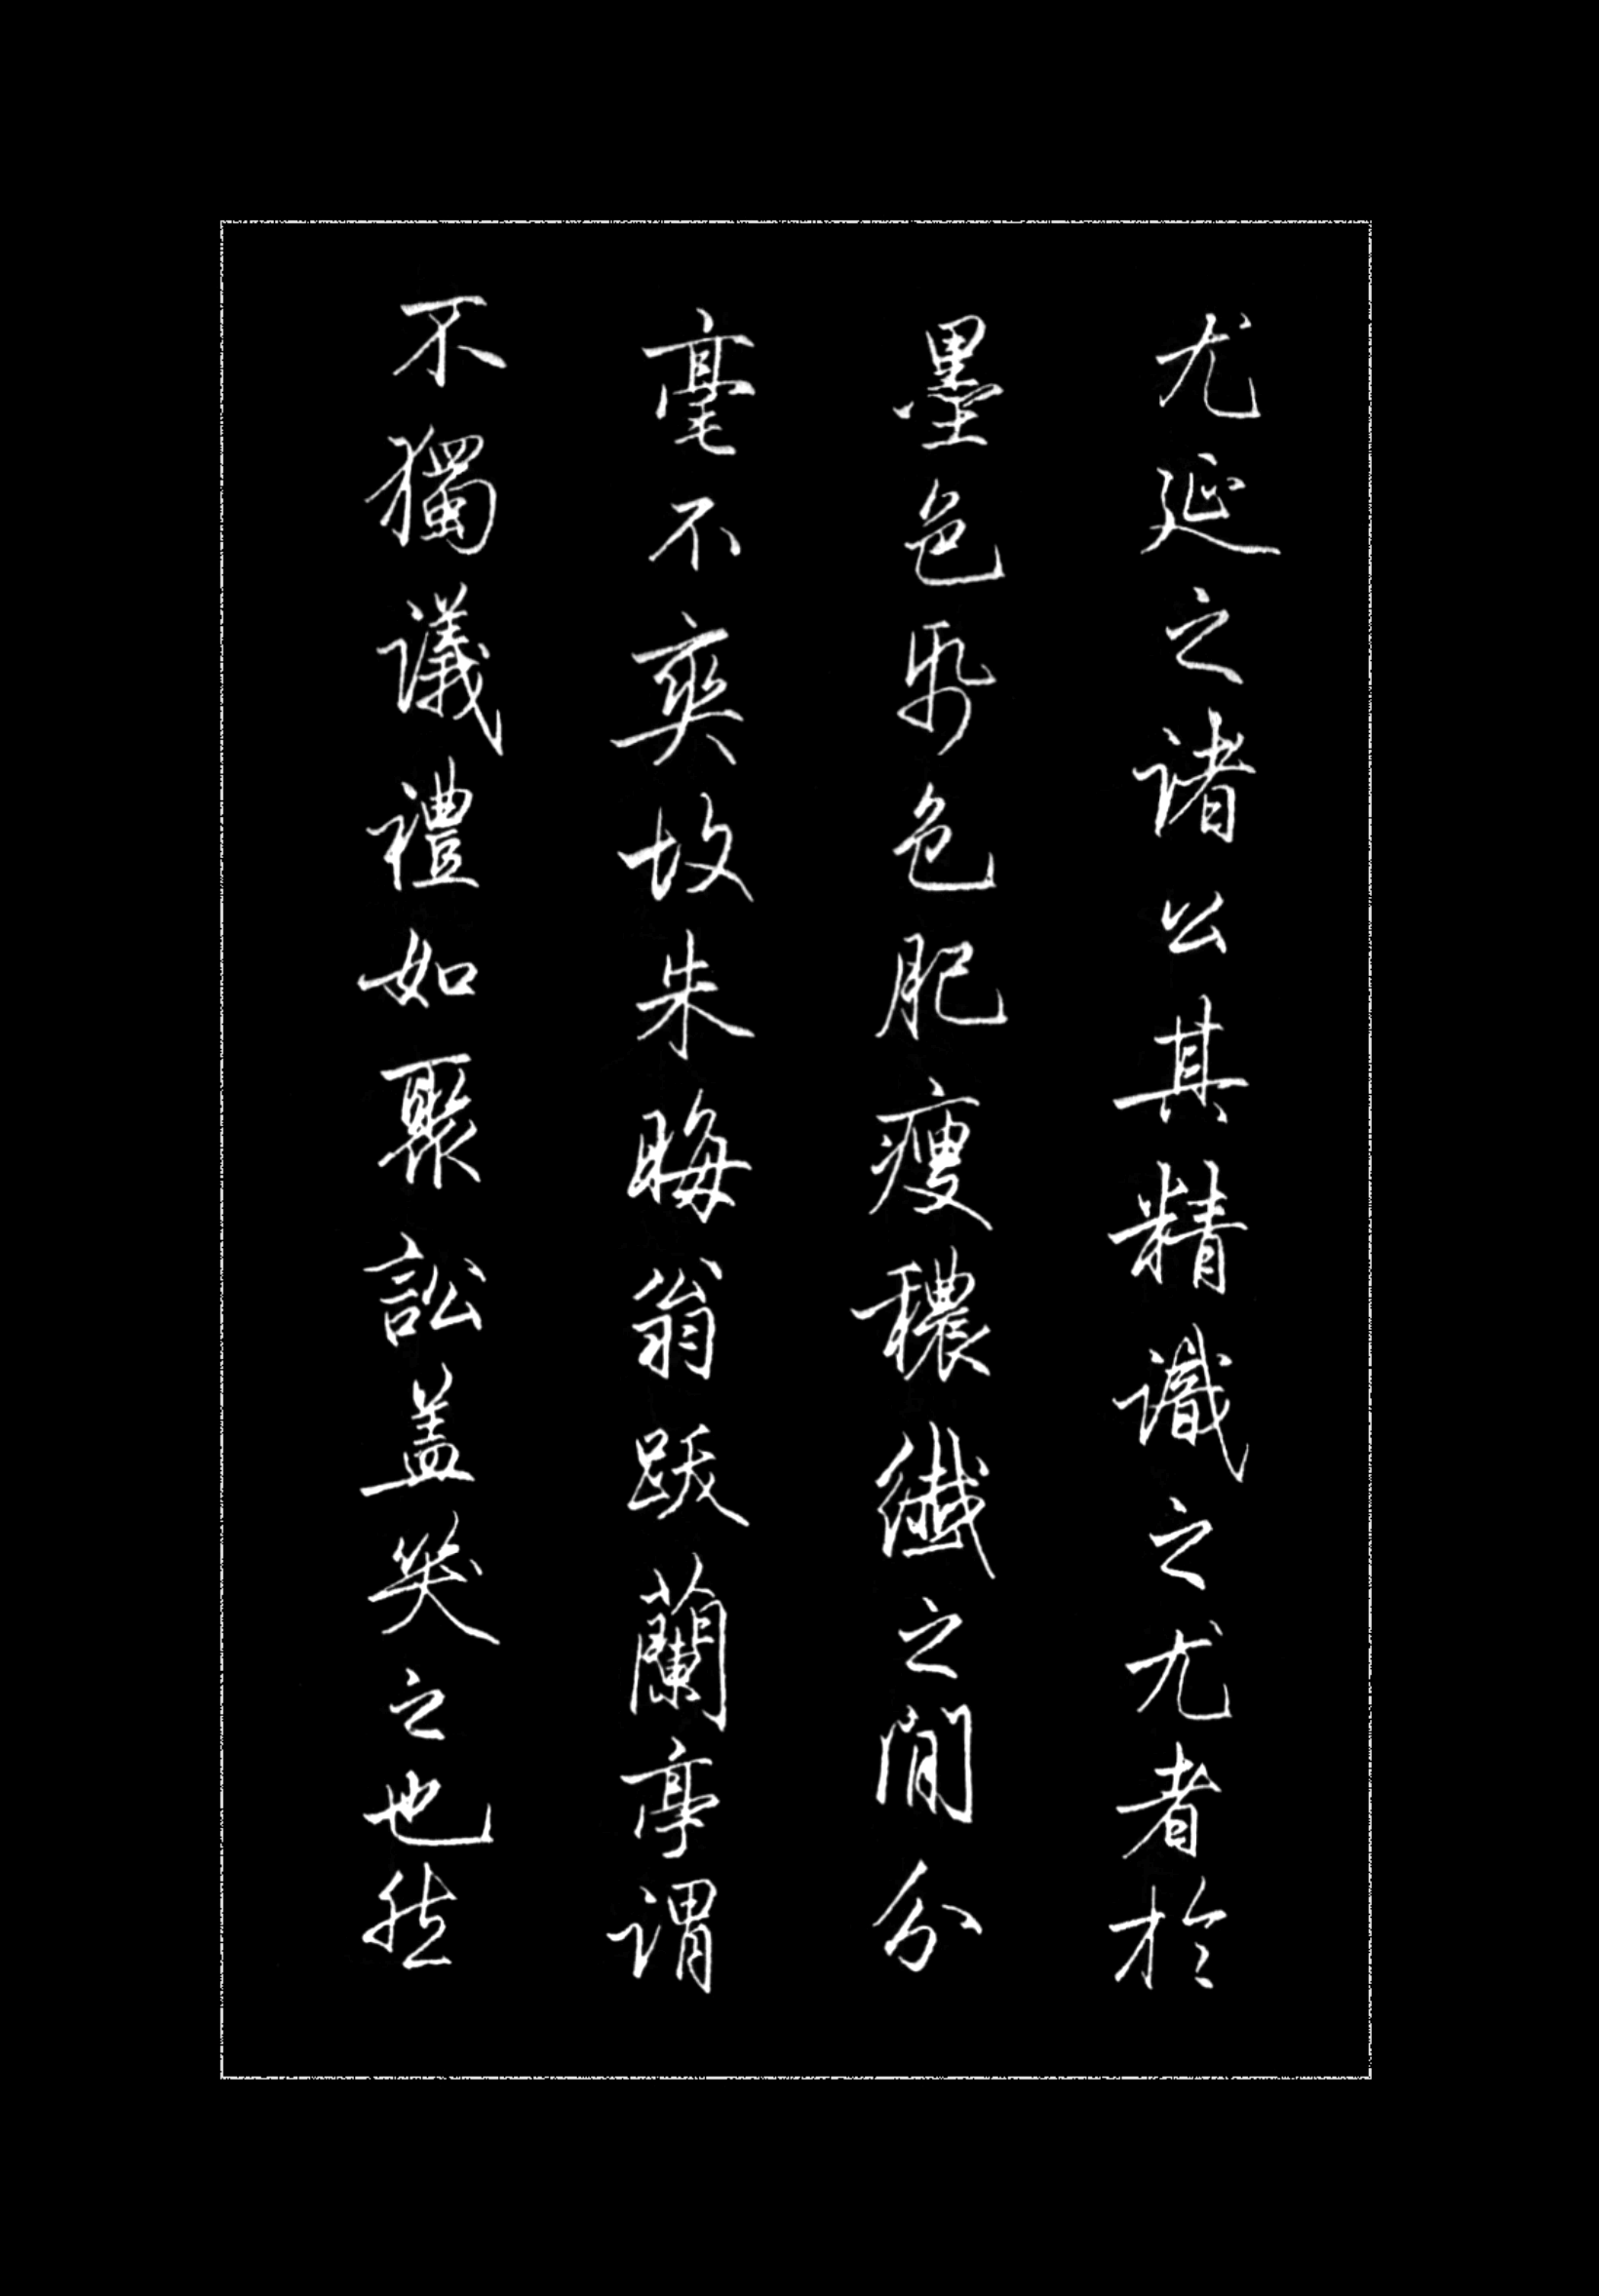 尤延之諸公其精識之尤者於
墨色帋色肥瘦穠纖之閒分
毫不爽故朱晦翁跋蘭亭謂
不獨議禮如聚訟盖笑之也然